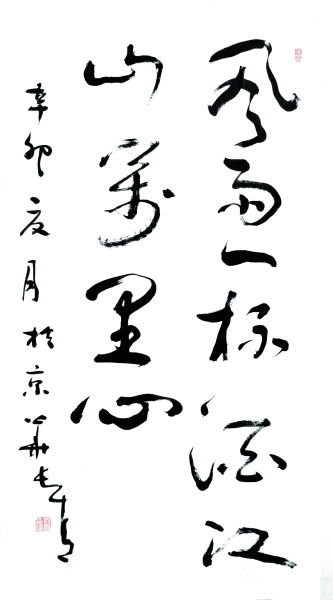 风雨一杯酒江
山萬里心
辛卯夏月於京華